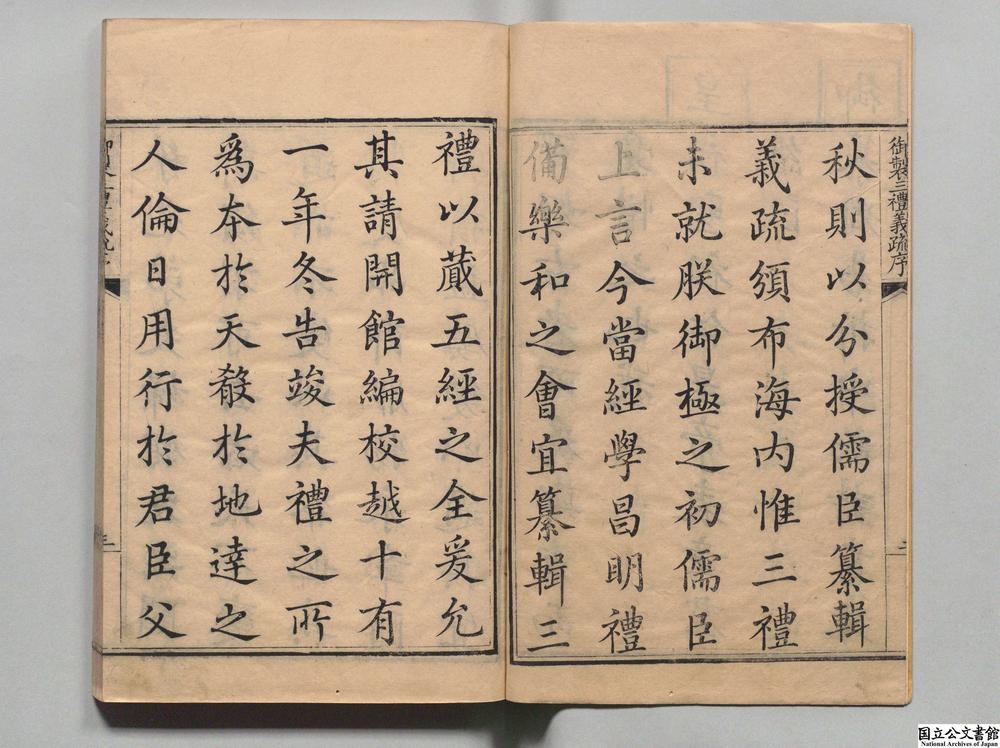 御製三禮義疏序
二
秋則以分授儒臣纂輯
義疏頒布海内惟三禮
未就朕御極之初儒臣
上言今當經學昌明禮
備樂和之會宜纂輯三
禮以蕆五經之全爰允
其請開館編校越十有
一年冬告竣夫禮之所
為本於天殽於地達之
人倫日用行於君臣父
三
国立公文書館
National Archives of Japan